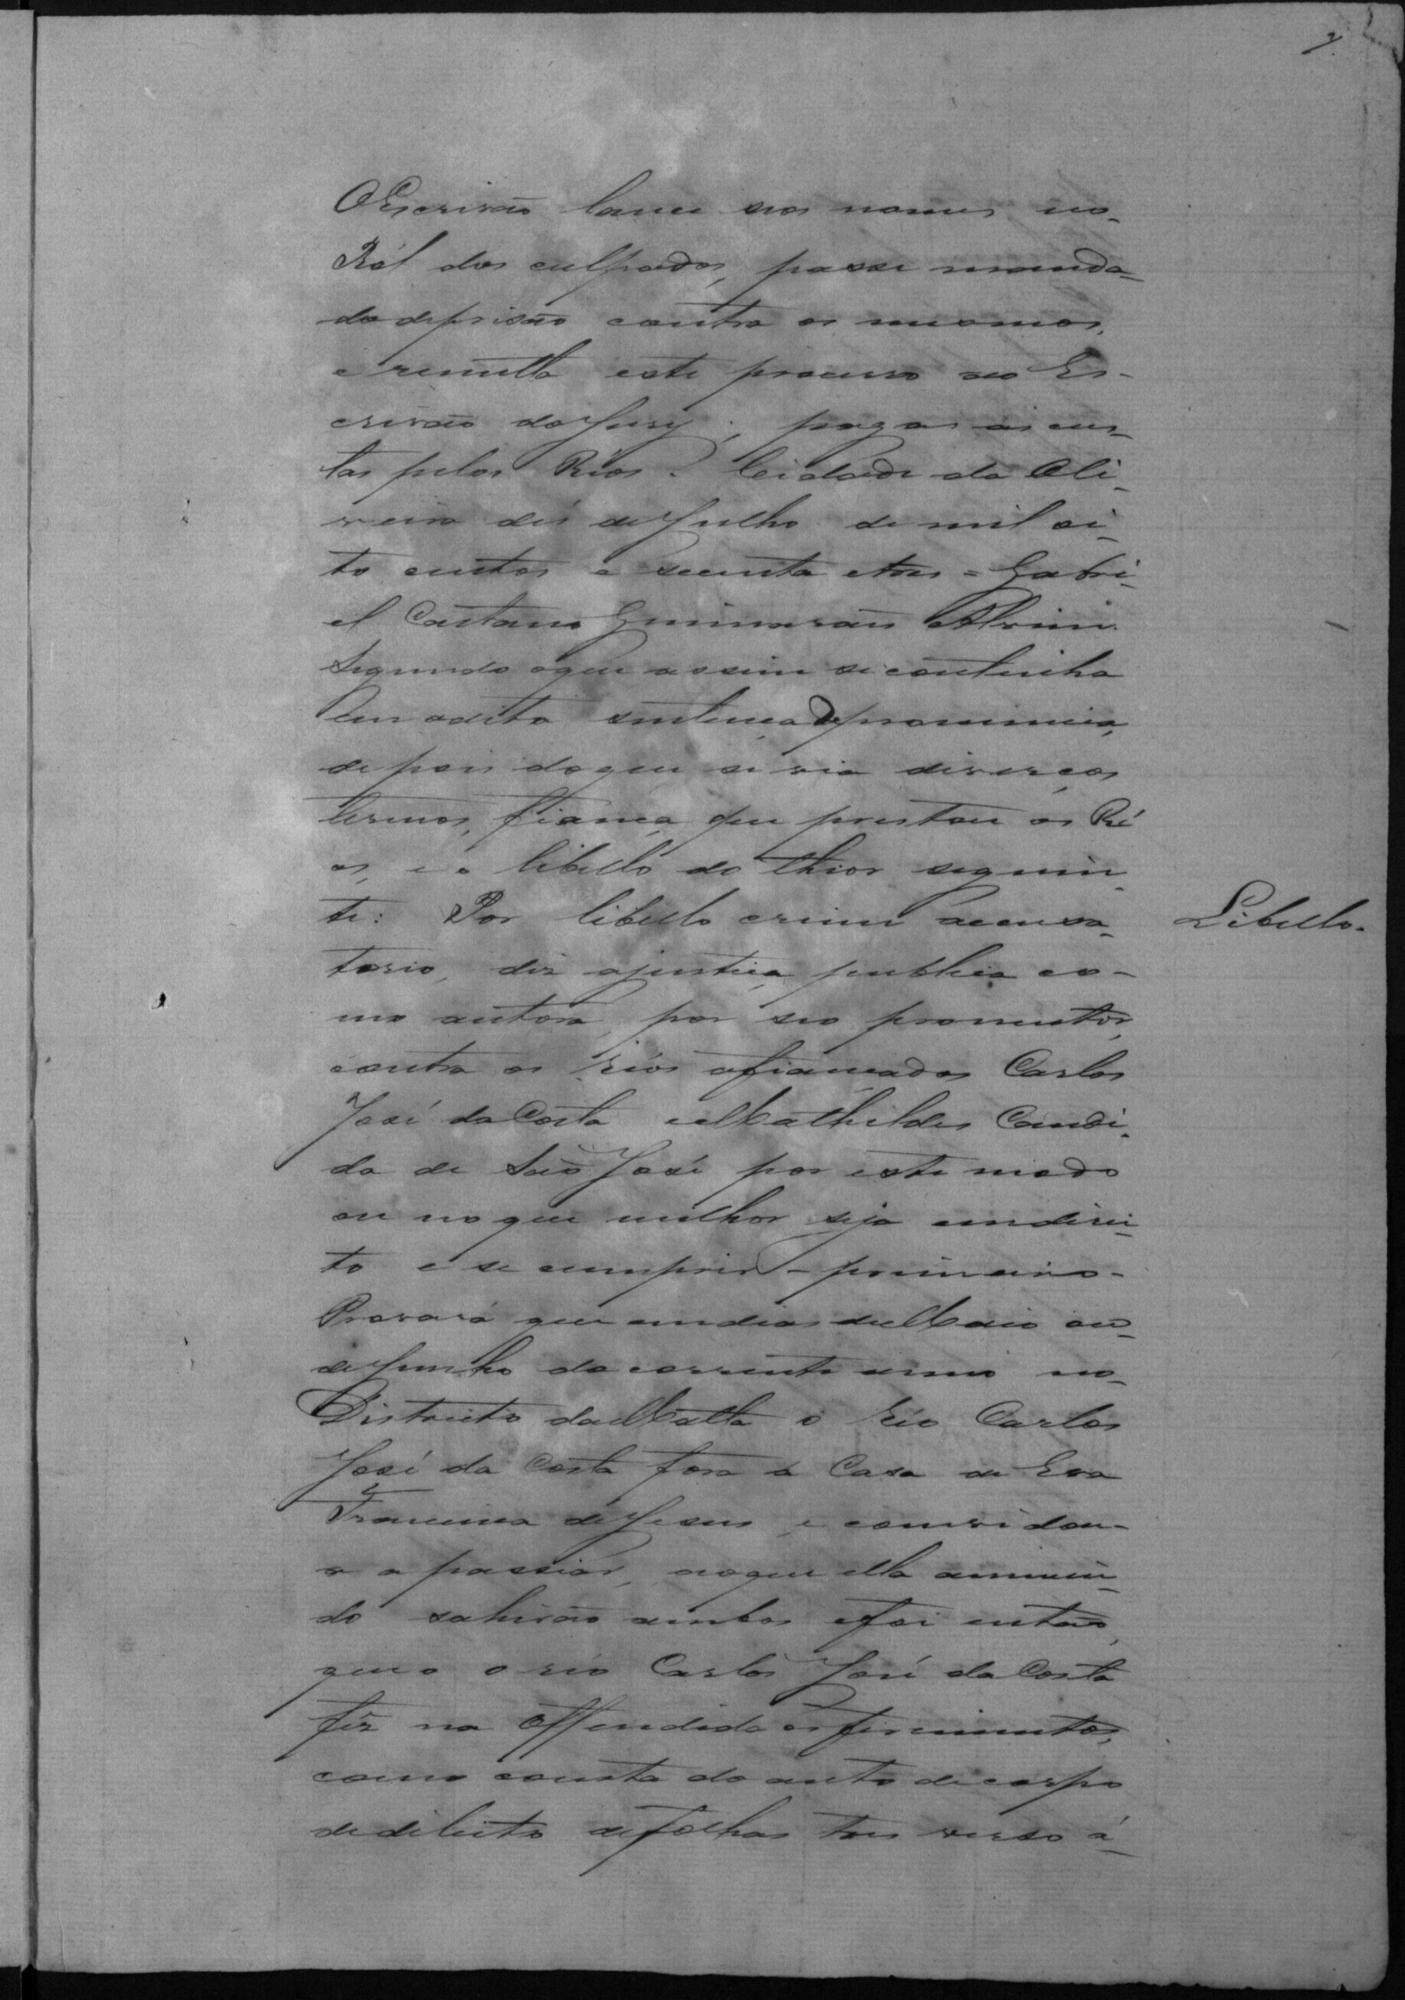 O Escrivão lance seos nomes no
Ról dos culpados, passe manda-
do de prisão contra os mesmos,
e remetta este processo ao Es-
crivão do Jury; pagas as cus-
tas pelos Réos. Cidade da Oli-
veira dés de Julho de mil oi-
to centos e secenta e tres = Gabri-
el Caetano Guimarães Alvim.
Segundo o que assim se continha
em a dita sentença de pronuncia,
depois do que se via diverços
termos, fiança, que prestou os Ré
os, e o libello do theor seguin-
te: Por libello crime accusa-
Libello.
torio, diz a justiça publica co-
mo autora, por seo promutor,
contra os réos afiançados Carlos
José da Costa e Mathildes Candi-
da de São José por este modo
ou no que melhor seja em direi-
to e se cumprir - primeiro -
Provará que em dias de Maio ou
de Junho do corrente anno no
Districto da Matta o réo Carlos
José da Costa fora á Casa de Eva
Francisca de Jesus, e convidou-
a a passiar, ao que ella annuin-
do sahirão ambos e foi então,
que o réo Carlos José da Costa
fêz na Offendida os ferimentos,
como consta do auto de corpo
de delicto de folhas tres verso á